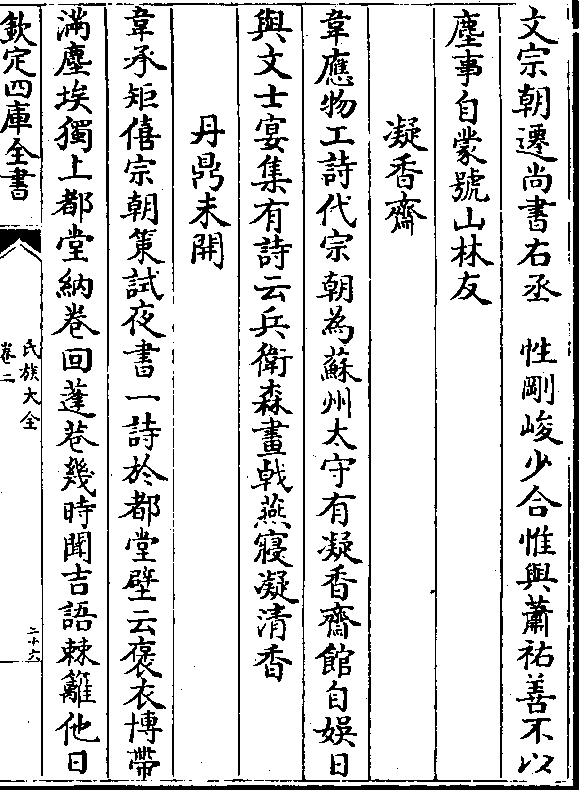 文宗朝遷尚書右丞　性剛峻少合惟與蕭祐善不以
塵事自蒙號山林友
凝香齋
韋應物工詩代宗朝為蘇州太守有凝香齋館自娛日
與文士宴集有詩云兵衛森畫戟燕寢凝清香
丹鼎未開
韋承矩僖宗朝策試夜書一詩於都堂壁云褒衣博帶
滿塵埃獨上都堂納卷回蓬巷幾時聞吉語棘籬他日
欽定四庫全書
氏族大全
卷二
二十六